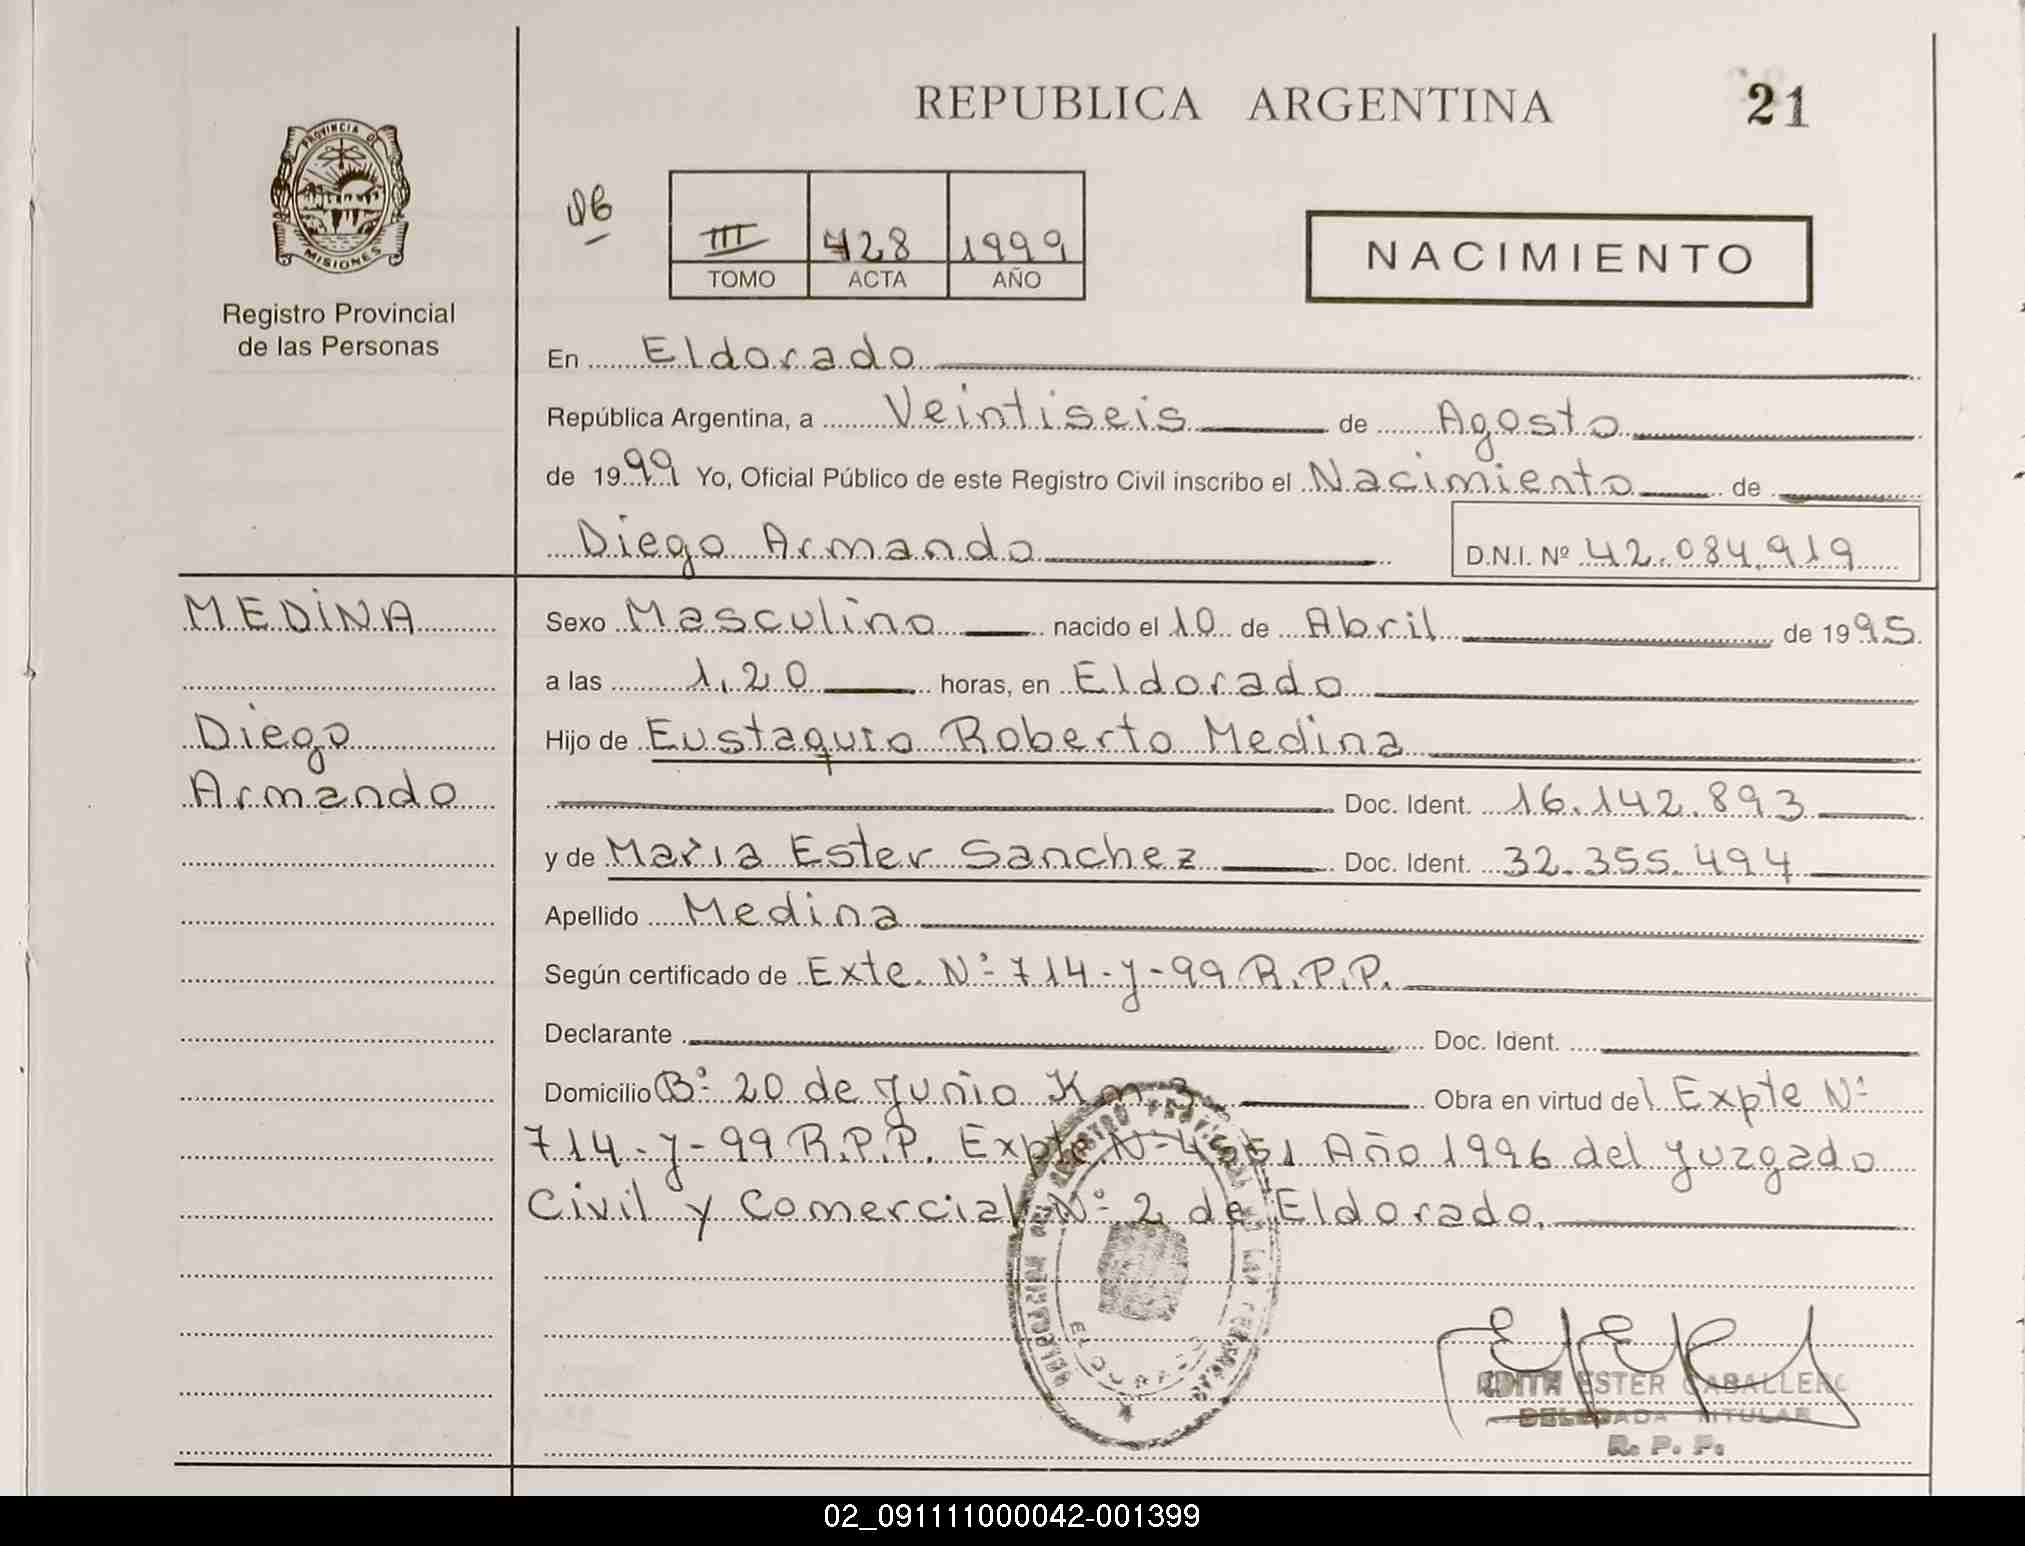 REPUBLICA ARGENTINA 21
PROVINCIA DE
MISIONES
Registro Provincial
de las Personas
III 428 1999
TOMO ACTA AÑO
NACIMIENTO
En Eldorado
República Argentina, a Veintiseis de Agosto
de 1999 Yo, Oficial Público de este Registro Civil inscribo el Nacimiento de
Diego Armando D.N.I. Nº 42.084.919
MEDINA
Diego
Armando
Sexo Masculino nacido el 10 de Abril de 1995
a las 1,20 horas, en Eldorado
Hijo de Eustaquio Roberto Medina
Doc. Ident. 16.142.893
y de Maria Ester Sanchez Doc. Ident. 32.355.494
Apellido Medina
Según certificado de Exte. Nº 714-J-99 R.P.P.
Declarante Doc. Ident.
Domicilio Bº 20 de Junio Km 3 Obra en virtud del Expte Nº
714-J-99 R.P.P. Expte Nº 4551 Año 1996 del Juzgado
Civil y Comercial Nº 2 de Eldorado.
EDITH ESTER CABALLERO
DELEGADA TITULAR
R. P. P.
02_091111000042-001399